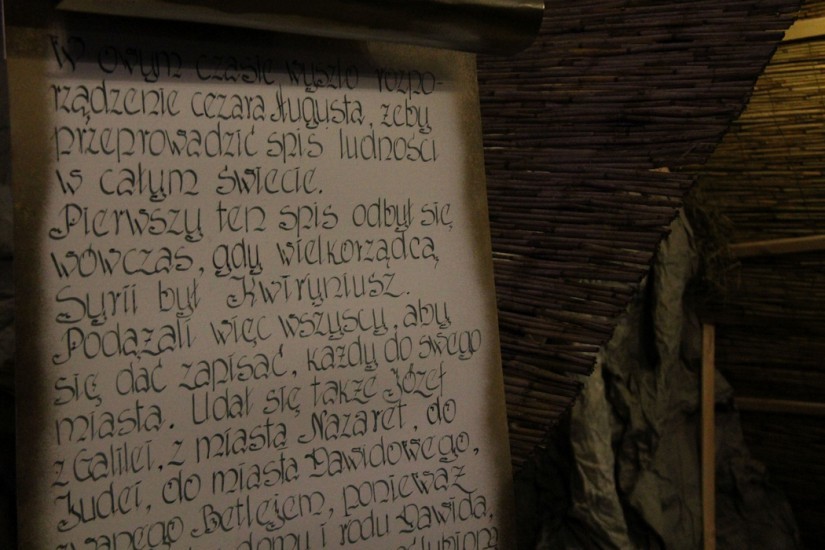 W owym czasie wyszło rozpo-
rządzenie cezara Augusta, żeby
przeprowadzić spis ludności
w całym świecie.
Pierwszy ten spis odbył się
wówczas, gdy wielkorządcą
Syrii był Kwiryniusz.
Podążali więc wszyscy, aby
się dać zapisać, każdy do swego
miasta. Udał się także Józef
z Galilei, z miasta Nazaret, do
Judei, do miasta Dawidowego,
zwanego Betlejem, ponieważ
domu i rodu Dawida,